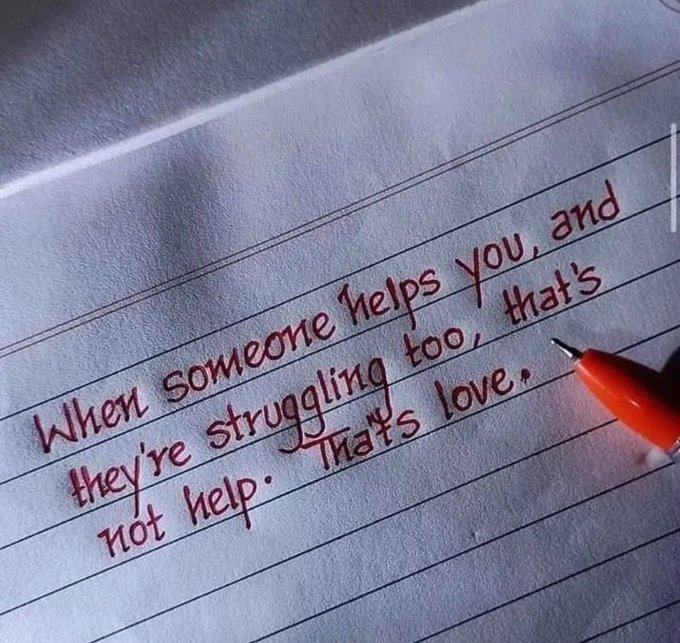 When someone helps you, and
they're struggling too, that's
not help. That's love.